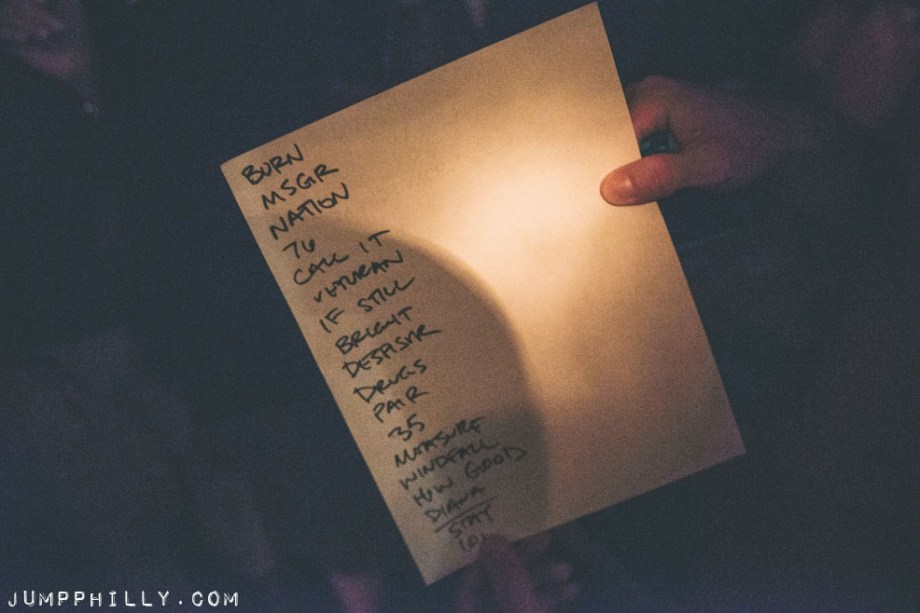 BURN
MSGR
NATION
76
CALL IT
VETERAN
IF STILL
BRIGHT
DRUGS
PAIR
35
MEASURE
WINDFALL
HOW GOOD
DIANA
STAY
JUMPPHILLY.COM